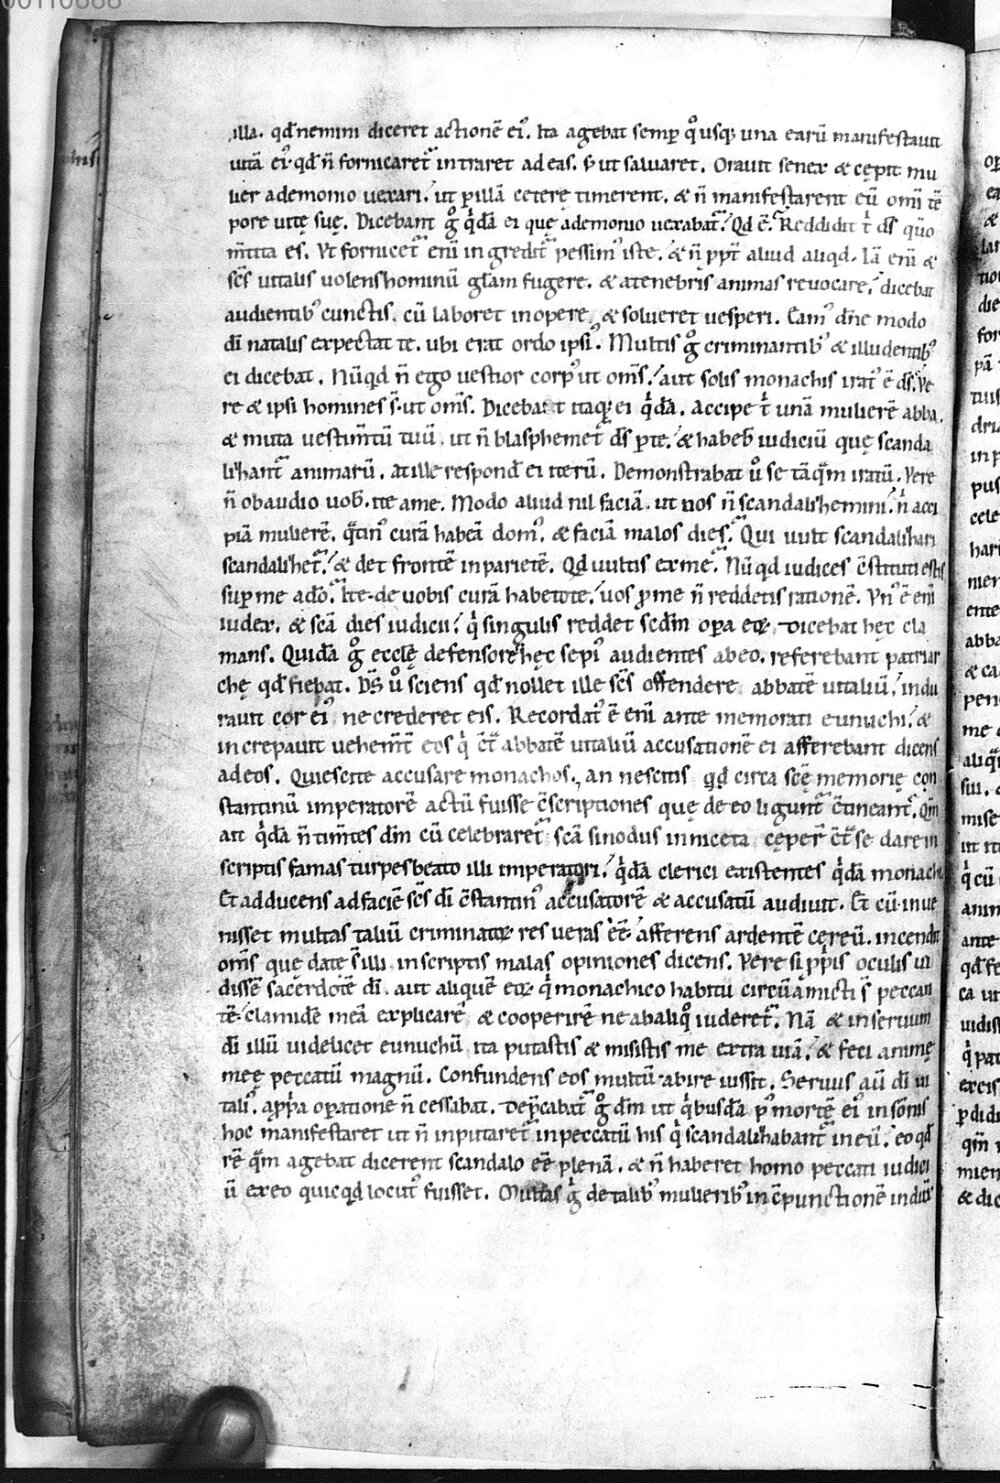 00110888
illa. qd̄ nemini diceret actionē ei᷒. Ita agebat semp̄ qͦusq; una earū manifestauit
uitā ei᷒. qd̄ n̄ fornicaret᷒ intraret ad eas. s; ut saluaret. Orauit senex & cępit mu
lier a demonio uexari. ut p̄ illā cetere timerent. & n̄ manifestarent eū om̄i tē
pore uitę suę. Dicebant gͦ qͥdā ei quę a demonio uexabat᷒. Qd ē. Reddidit t̄ d̄s qūo
m̄tita es. Vt fornicet᷒ enī ingredit᷒ pessim᷒ iste. & n̄ ppt̄ aliud aliqd. Iā enī &
sc̄s uitalis uolens hominū gl̄am fugere. & a tenebris animas reuocare. dicebat
audientib᷒ cunctis. cū laboret in opere & solueret uesperi. Eam᷒ dn̄e modo
dī natalis expectat te. ubi erat ordo ipsi᷒. Multis gͦ criminantib᷒ & illudentib᷒
ei dicebat. Nūqd n̄ ego uestior corp᷒ ut om̄s. aut solis monachis irat᷒ ē d̄s. Ve
re & ipsi homines s̄ ut om̄s. Dicebant itaq; ei qͥdā. Accipe t̄ unā mulierē abba.
& muta uestim̄tū tuū. ut n̄ blasphemet᷒ d̄s p̄ te. & habeb᷒ iudiciū quę scanda
lizant᷒ animarū. at ille respond̄ ei iterū. Demonstrabat uͦ se tāqm̄ iratū. Vere
n̄ obaudio uob᷒. ite a me. Modo aliud nil faciā. ut uos n̄ scandalizemini. n̄ acci
piā mulierē. qͣtin᷒ curā habeā dom᷒. & faciā malos dies. Qui uult scandalizari
scandalizet᷒. & det frontē in parietē. Qd uultis ex me. Nūqd iudices c̄stituti estis
sup̄ me a dō. Ite de uobis curā habetote. uos p̄ me n̄ reddetis rationē. Vn᷒ ē enī
iudex. & sc̄a dies iudicii. qͥ singulis reddet sc̄dm op̄a eoꝝ. Dicebat hęc cla
mans. Quidā gͦ eccl̄ę defensores hęc sepi᷒ audientes ab eo. referebant patriar
chę qd̄ fiebat. D̄s uͦ sciens qd̄ nollet ille sc̄s offendere abbatē uitaliū. indu
rauit cor ei᷒ ne crederet eis. Recordat᷒ ē enī ante memorati eunuchi. &
increpauit uehem̄t eos qͥ c̄t̄ abbatē uitaliū accusationē ei afferebant dicens
ad eos. Quiescite accusare monachos. an nescitis qd circa sc̄ę memorię con
stantinū imperatorē actū fuisse c̄scriptiones quę de eo ligunt᷒ c̄tineant᷒. Qm̄
ait qͥdā n̄ tim̄tes dm̄ cū celebraret᷒ sc̄a sinodus in niceta cęper̄ c̄t̄ se dare in
scriptis famas turpes beato illi imperatori. qͥdā clerici existentes qͥdā monachi
Et adducens ad faciē sc̄s dī c̄stantin᷒ accusatorē & accusatū audiuit. Et cū inue
nisset multas taliū criminatoꝝ res ueras ēē. afferens ardentē cereū. incendit
om̄s que date s̄ illi in scriptis malas opiniones dicens. Vere si pp̄is oculis ui
dissē sacerdotē dī. aut aliquē eoꝝ qͥ monachico habitū circūamicti s̄ peccan
tē. clamidē meā explicarē & cooperirē ne ab aliqͦ uideret᷒. Nā & in seruum
dī illū uidelicet eunuchū ita putastis & misistis me extra uiā. & feci animę
meę peccatū magnū. Confundens eos multū abire iussit. Seruus aū dī ui
tali᷒. a pp̄a op̄atione n̄ cessabat. Dep̄cabat᷒ gͦ dm̄ ut qͥbusdā p᷒ mortē ei᷒ in sōnis
hoc manifestaret ut n̄ inputaret᷒ in peccatū his qͥ scandalizabant᷒ in eū. eo qd̄
rē qm̄ agebat dicerent scandalo ēē plenā. & n̄ haberet homo peccati iudici
ū ex eo quicqd locut᷒ fuisset. Multas gͦ de talib᷒ mulierib᷒ in c̄punctionē induxit